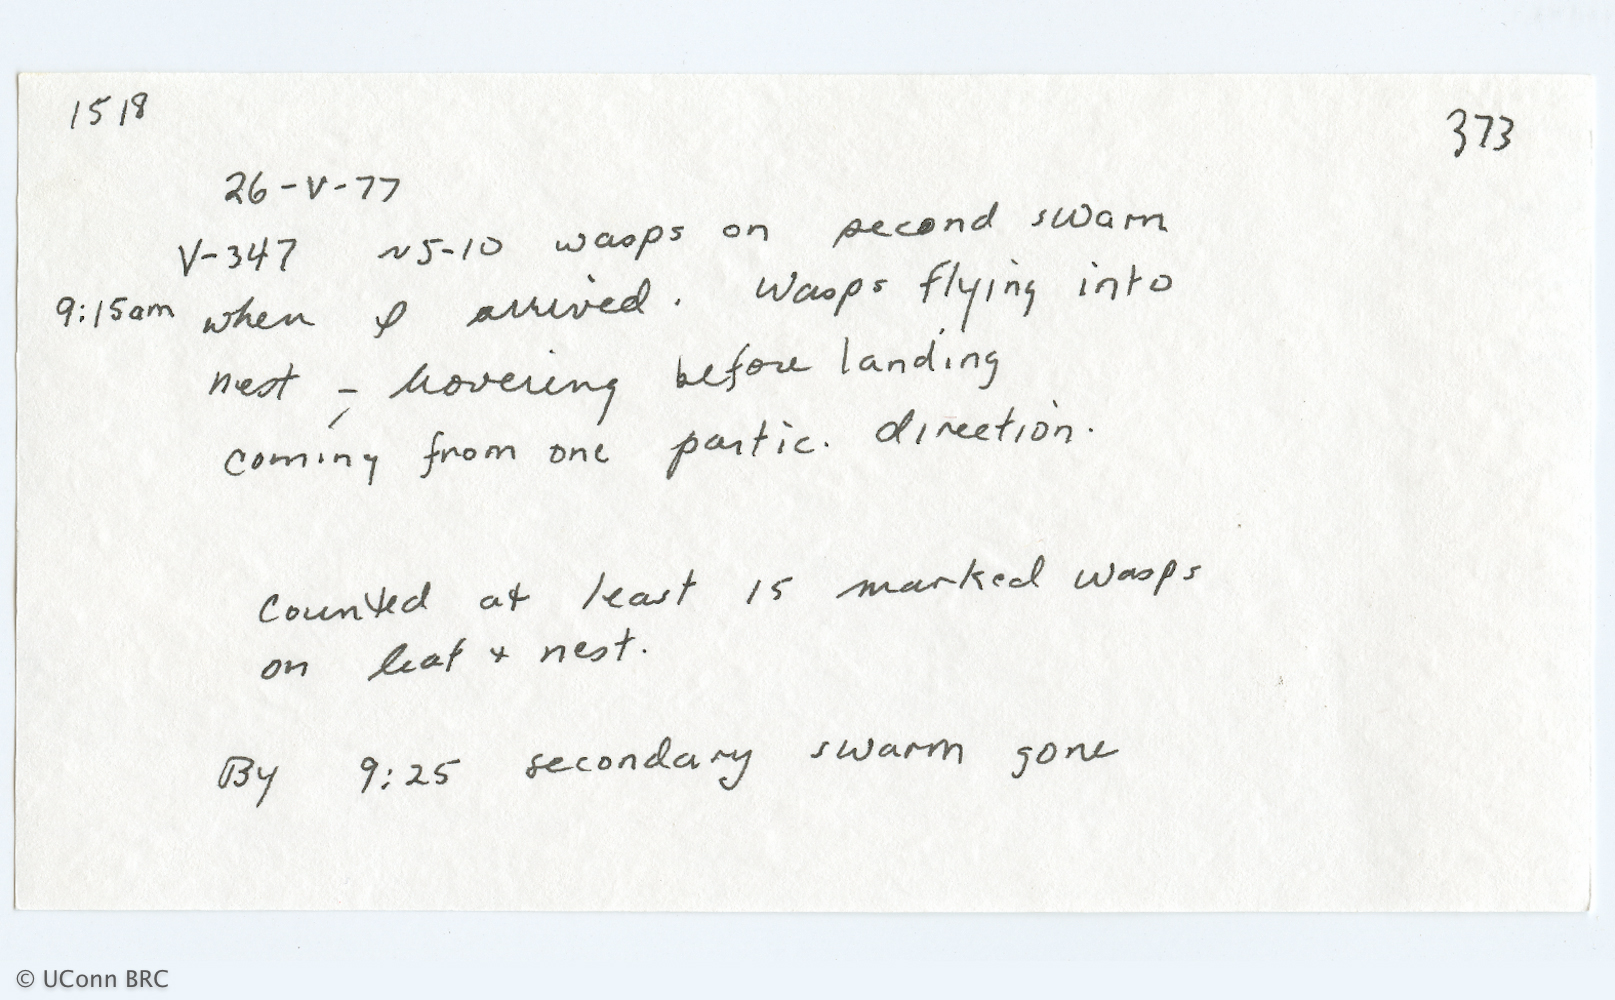 1518
373
26-V-77
V-347 ~5-10 wasps on second swarm
9:15am when I arrived. Wasps flying into
nest - hovering before landing
coming from one partic. direction.
Counted at least 15 marked wasps
on leaf + nest.
By 9:25 secondary swarm gone
© UConn BRC